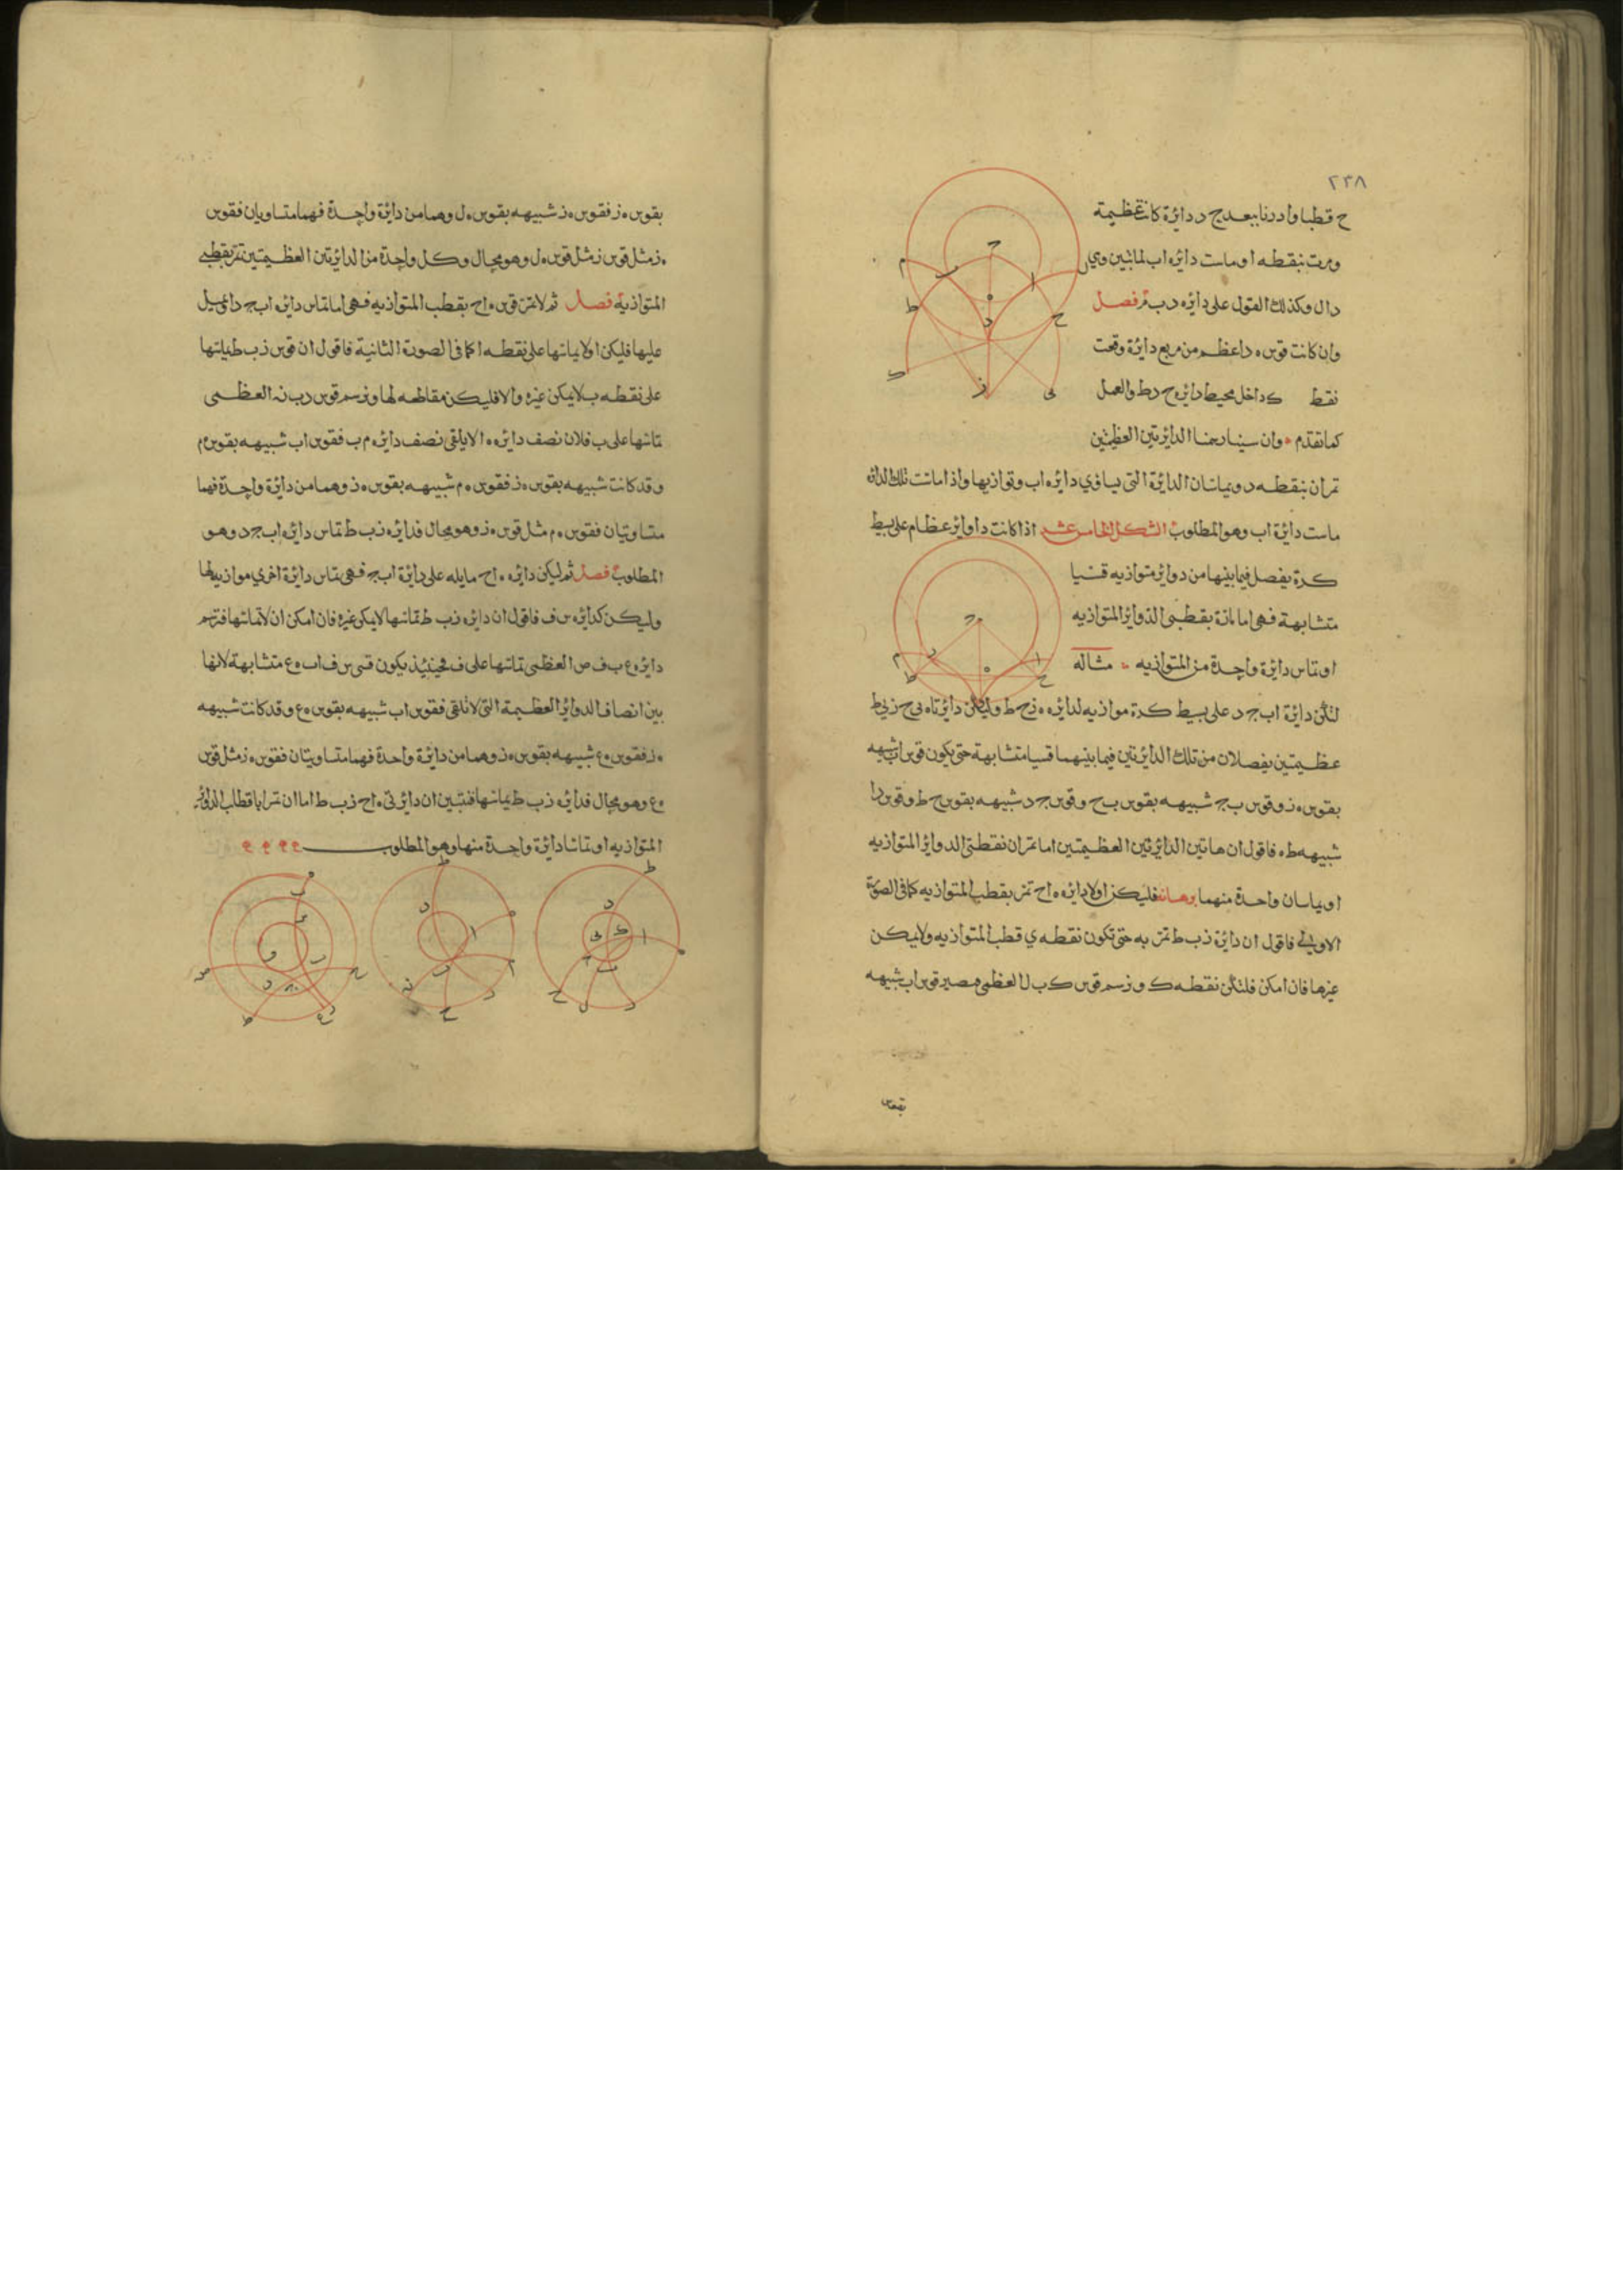 ٢٣٨
ح قطبا وادرنا ببعد ج د دائرة كانت عظيمة
ومرت بنقطه ا وماست دائره اب لما تبين وهي
دال وكذلك القول على دائره د ب م فصل
وان كانت قوس ه د اعظم من ربع دائرة وقعت
نقط ك داخل محيط دائره ح د ط والعمل
كما تقدم وان سينا رسمنا الدائرتين العظيمتين
تمران بنقطه د ويماسان الدائرة التي يساوي دائره اب وتوازيها واذا ماست تلك الدائره
ماست دائرة اب وهو المطلوب الشكل الخامس عشر اذا كانت دوائر عظام على بسيط
كرة يفصل فيما بينها من دوائر متوازيه قسيا
متشابهة فهي اما مارة بقطبي الدوائر المتوازيه
او تماس دائرة واحدة من المتوازيه مثاله
لتكن دائرة اب ج د على بسيط كرة موازيه لدائره ه ز ح ط وليكن دائرتا ه ي ح ز ي ط
عظيمتين يفصلان من تلك الدائرتين فيما بينهما قسيا متشابهة حتى يكون قوس اب شبيهه
بقوس ه ز وقوس ب ج شبيهه بقوس ب ح وقوس ج د شبيهه بقوس ح ط وقوس د ا
شبيهه ط ه فاقول ان هاتين الدائرتين العظيمتين اما تمران بقطبي الدوائر المتوازيه
او يماسان واحدة منهما برهانه فليكن اولا دائره ه ا ح تمر بقطب المتوازيه كما في الصورة
الاولى فاقول ان دائرة ز ب ط تمر به حتى تكون نقطه ي قطب المتوازيه ولا يمكن
غيرها فان امكن فلتكن نقطه ك ونرسم قوس ك ب ل العظمى فيصير قوس اب شبيهه
بقوس
بقوس ه ز فقوس ه ز شبيهه بقوس ه ل وهما من دائرة واحدة فهما متساويان فقوس
ه ز مثل قوس ه ل وهو محال وكل واحدة من الدائرتين العظيمتين تمر بقطبي
المتوازية فصل ثم لا تمر قوس ه ا ح بقطب المتوازيه فهي اما تماس دائره اب ج د او تميل
عليها فليكن اولا يماسها على نقطه ا كما في الصورة الثانية فاقول ان قوس ز ب ط يماسها
على نقطه ب لا يمكن غيره والا فليكن مقاطعه لها ونرسم قوس د ب ن العظمى
تماسها على ب فلان نصف دائره ه ا لا يلقى نصف دائره م ب فقوس اب شبيهه بقوس ه م
وقد كانت شبيهه بقوس ه ز فقوس ه م شبيهه بقوس ه ز وهما من دائرة واحدة فهما
متساويتان فقوس ه م مثل قوس ه ز وهو محال فدائره ز ب ط تماس دائره اب ج د وهو
المطلوب فصل ثم ليكن دائره ه ا ح مايله على دائرة اب ج فهي تماس دائرة اخري موازيه لها
وليكن كدائره س ف فاقول ان دائره ز ب ط تماسها لا يمكن غيره فان امكن ان لا تماسها فنرسم
دائره ع ب ف ص العظمى تماسها على ف فحينيذ يكون قسي س ف اب ه ع متشابهة لانها
بين انصاف الدوائر العظيمة التي لا تلقى فقوس اب شبيهه بقوس ه ع وقد كانت شبيهه
ه ز فقوس ه ع شبيهه بقوس ه ز وهما من دائرة واحدة فهما متساويتان فقوس ه ز مثل قوس
ه ع وهو محال فدائره ز ب ط يماسها فتبين ان دائرتي ه ا ح ز ب ط اما ان تمرا باقطاب الدوائر
المتوازيه او تماسا دائرة واحدة منها وهو المطلوب